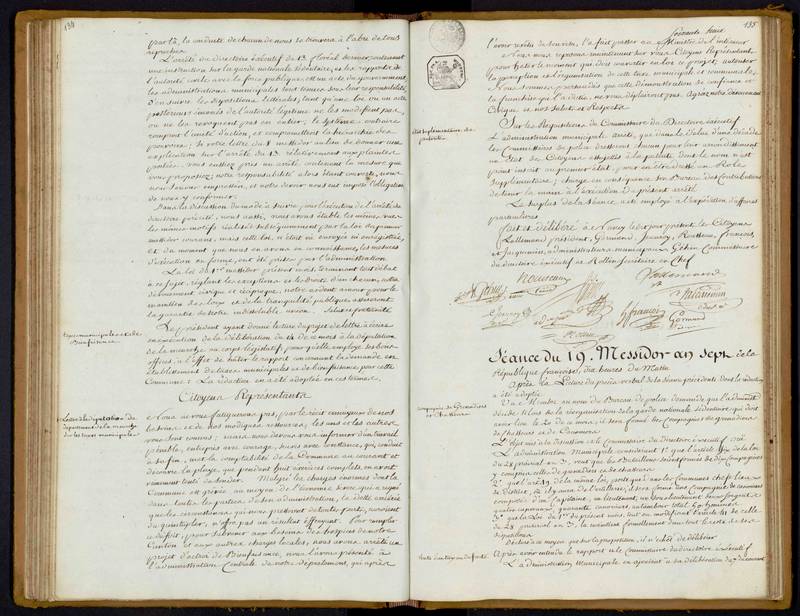 134
par là, la conduite de chacun de nous se trouvera à l'abri de tous
reproches.
L'arrêté du directoire exécutif du 13 floréal dernier contenant
une instruction sur la garde nationale sédentaire, et les rapports de
l'autorité civile avec la force publique, est un acte du gouvernement,
les administrations municipales sont tenues sous leur responsabilité
d'en suivre les dispositions littérales, tant qu'une loi ou un acte
postérieur émané de l'autorité légitime ne les modifient pas,
ou ne les révoquent pas en entier; le système contraire
rompant l'unité d'action, et compromettant la hiérarchie des
pouvoirs; Si votre lettre du messidor au lieu de donner une
explication sur l'arrêté du 13 relativement aux plantes
vous eussiez pris un arrêté contenant la mesure que
vous proposez; notre responsabilité alors étant couverte, nous
nous serions empressés, et notre devoir nous eut imposé l'obligation
de nous y conformer.
Dans la discussion du mode à suivre pour l'exécution de l'arrêté du
directoire précité, nous aussi, nous avons établi les mêmes vues
les mêmes motifs réalisés subséquemment par la loi du premier
messidor courant, mais cette loi, n'était ni envoyée ni enregistrée,
et du moment que nous en avons eu connaissance, les mesures
d'exécution en forme, ont été prises par l'administration
La loi du 1er messidor présent mois terminant tout débat
à ce sujet, réglant les exceptions et les droits d'un chacun, notre
dévouement civique et réciproque, notre ardent amour pour le
maintien des loix et de la tranquilité publique assureront
la garantie de notre indissoluble union. Salut et fraternité.
taxes municipales et de
Bienfaisance
Le président ayant donné lecture du projet de lettre à écrire
en exécution de la délibération du 14 de ce mois à la députation
de la meurthe au corps législatif, pour qu'elle employe ses bons
offices, à l'effet de hâter le rapport concernant la demande en
établissement de taxes municipales et de bienfaisance pour cette
Commune: La rédaction en a été adoptée en ces termes.
Citoyens Représentants
Lettre à la députation du
département de la meurthe
sur les taxes municipales
Nous ne vous fatiguerons pas, par le récit ennuyeux de nos
besoins et de nos modiques ressources, les uns et les autres
vous sont connus; mais nous devons vous informer d'un travail
pénible, entrepris avec courage, suivi avec constance, qui, conduit
à sa fin, met la comptabilité de la Commune au courant et
découvre la playe, que pendant huit années complètes on avait
vainement tenté de sonder. Malgré les charges énormes dont la
Commune est grevée au moyen de l'économie sévère qui a régné
dans toutes les parties de son administration, la dette arriérée
que les circonstances qui nous pressèrent de toutes parts, auraient
dû quintupler, n'offre pas un résultat effrayant. Pour remplir
ce déficit, pour subvenir aux besoins des hospices de notre
Canton et aux autres charges locales, nous avons arrêté un
projet d'octroi de Bienfaisance, nous l'avons présenté à
l'administration Centrale de notre département, qui après
135
l'avoir revêtu de son avis, l'a fait passer au Ministre de l'intérieur
Nous nous reposons entièrement sur vous, Citoyens Représentants,
pour hâter le moment qui doit convertir en loi ce projet, autoriser
la perception et l'organisation de cette taxe municipale et communale,
Nous sommes persuadés que cette démonstration de confiance et
la franchise qui l'a dictée, ne vous déplairont pas. Agréez notre dévouement
Civique et nos Saluts et Respects
état suplémentaire de
patente
Sur les Réquisitions du Commissaire du Directoire exécutif
L'administration municipale arrête, que dans le délai d'une décade
les Commissaires de police dresseront chacun pour leur arrondissement
un état des Citoyens assujettis à la patente dont le nom n'est
point inscrit au premier état, pour en être dressé un Rôle
Supplémentaire; charge en conséquence son Bureau des Contributions
de tenir la main à l'exécution du présent arrêté
Le surplus de la séance, a été employé à l'expédition d'affaires
particulières
fait et délibéré à Nancy lesdits jour présents les Citoyens
Lallemand président, Germond, Jeanroy, François,
et Jacqueminot, administrateurs municipaux, Commissaire
du directoire exécutif et Rollin Secrétaire en Chef
Lallemand
François
Germond
Séance du 19. Messidor an Sept de la
République française, dix heures du Matin
Après la Lecture du procès verbal de la séance précédente dont la rédaction
a été adoptée
Compagnies de Grenadiers
et Chasseurs
Un Membre au nom du Bureau de police demande que l'administration
décide si lors de la réorganisation de la garde nationale sédentaire qui doit
avoir lieu le 20 de ce mois, il sera formé des Compagnies de grenadiers
de Chasseurs et de Canonniers
L'objet mis à la discussion et le Commissaire du Directoire exécutif ouï
L'administration Municipale considérant 1° que l'article de la loi
du 28 prairial an 3, veut que les Bataillons soient formés de dix Compagnies
y compris celle de grenadiers et de chasseurs
2° que l'art 19 de la même loi, porte qui dans les Communes chef-lieu
de District, et il y aura de l'artillerie, il sera formé une Compagnie de Canonniers
composée d'un Capitaine, un lieutenant, un sous-lieutenant, deux sergents
quatre caporaux, quarante canonniers, un tambour total 50 hommes
3° que la Loi du 1er du présent mois, tout en modifiant l'article de celle
du 28 prairial an 3, la maintient formellement dans tout le reste de ses
dispositions
Déclare à ce moyen que sur la proposition, il n'échet de délibérer
Après avoir entendu le rapport et le Commissaire du directoire exécutif
L'administration Municipale en ajoutant à sa délibération du 7 du courant